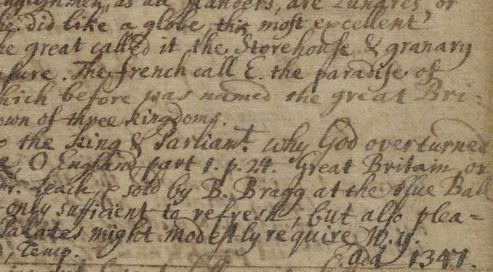 as all Islanders, are
did like a globe this most excellent
great called it the Storehouse & granary
The french call E. the paradise of
which before was named the great Bri-
own of three kingdomg.
the King & Parliant. why God overturned
O England part 1. p. 24. Great Britain, or
Leach, & sold by B. Bragg at the Blue Ball
only sufficient to refresh, but also plea-
Palates might modestly require
Temp. 1347.